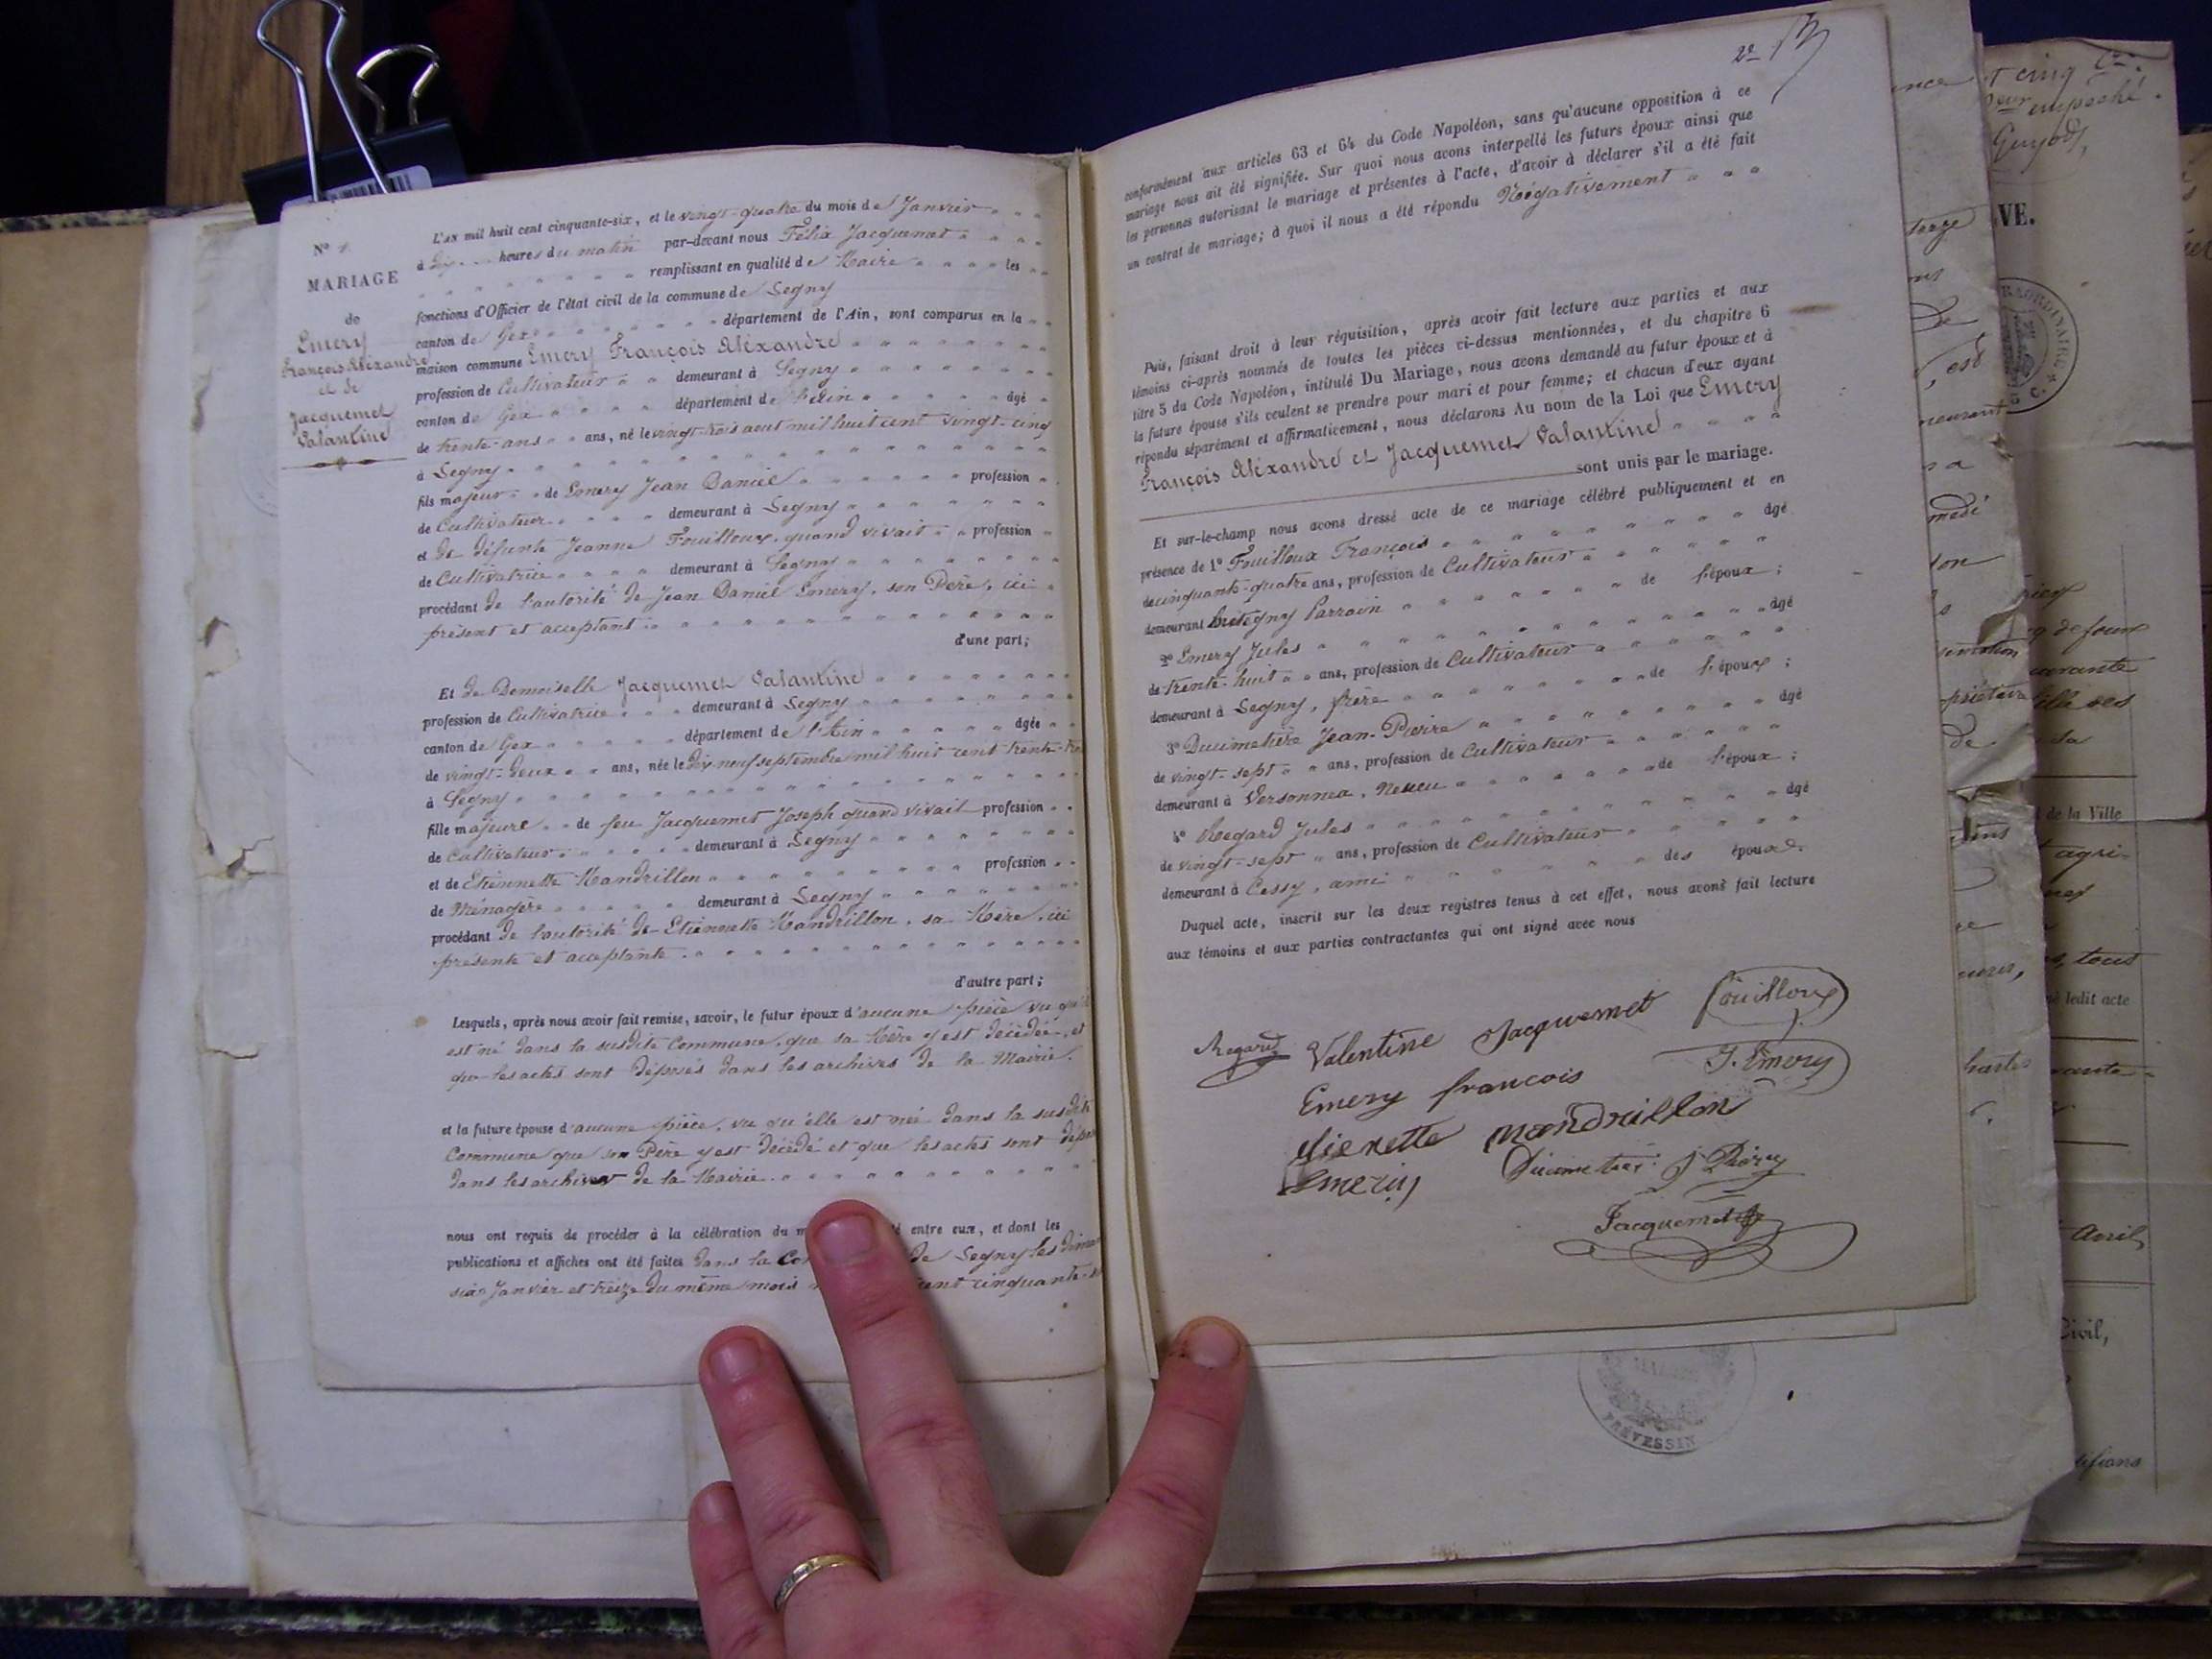 N° 1.
MARIAGE
de
Emery
François Aléxandre
et de
Jacquemet
Valantine
L'AN mil huit cent cinquante-six, et le vingt-quatre du mois de Janvier
à dix heures du matin par-devant nous Félix Jacquemet
remplissant en qualité de Maire les
fonctions d'Officier de l'état civil de la commune de Segny
canton de Gex département de l'Ain, sont comparus en la
maison commune Emery François Aléxandre
profession de Cultivateur demeurant à Segny
canton de Gex département de l'Ain âgé
de trente-ans ans, né le vingt-trois aout mil huit cent vingt-cinq
à Segny
fils majeur de Emery Jean Daniel profession
de Cultivateur demeurant à Segny
et de défunte Jeanne Fouilloux, quand vivait profession
de Cultivatrice demeurant à Segny
procédant de l'autorité de Jean Daniel Emery, son Père, ici
présent et acceptant
d'une part;
Et de Demoiselle Jacquemet Valantine
profession de Cultivatrice demeurant à Segny
canton de Gex département de l'Ain âgée
de vingt-deux ans, née le dix neuf septembre mil huit cent trente-
à Segny
fille majeure de feu Jacquemet Joseph quand vivait profession
de Cultivateur demeurant à Segny
et de Etiennette Mandrillon profession
de Ménagère demeurant à Segny
procédant de l'autorité de Etiennette Mandrillon, sa Mère, ici
présente et acceptante
d'autre part;
Lesquels, après nous avoir fait remise, savoir, le futur époux d'aucune pièce vu qu'il
est né dans la susdite Commune, que sa Mère y est décédée, et
que les actes sont déposés dans les archives de la Mairie.
et la future épouse d'aucune pièce, vu qu'elle est née dans la susdite
Commune que son Père y est décédé et que les actes sont
dans les archives de la Mairie.
nous ont requis de procéder à la célébration du entre eux, et dont les
publications et affiches ont été faites dans la de Segny les
six Janvier et treize du même mois cent cinquante-
2e
conformément aux articles 63 et 64 du Code Napoléon, sans qu'aucune opposition à ce
mariage nous ait été signifiée. Sur quoi nous avons interpellé les futurs époux ainsi que
les personnes autorisant le mariage et présentes à l'acte, d'avoir à déclarer s'il a été fait
un contrat de mariage; à quoi il nous a été répondu Négativement
Puis, faisant droit à leur réquisition, après avoir fait lecture aux parties et aux
témoins ci-après nommés de toutes les pièces ci-dessus mentionnées, et du chapitre 6
titre 5 du Code Napoléon, intitulé Du Mariage, nous avons demandé au futur époux et à
la future épouse s'ils veulent se prendre pour mari et pour femme; et chacun d'eux ayant
répondu séparément et affirmativement, nous déclarons Au nom de la Loi que Emery
François Aléxandre et Jacquemet Valantine
sont unis par le mariage.
Et sur-le-champ nous avons dressé acte de ce mariage célébré publiquement et en
présence de 1° Fouilloux François âgé
de cinquante-quatre ans, profession de Cultivateur
demeurant Parrain de l'époux;
2° Emery Jules âgé
de trente-huit ans, profession de Cultivateur
demeurant à Segny, frère de l'époux;
3° Ducimetière Jean-Pierre âgé
de vingt-sept ans, profession de Cultivateur
demeurant à Versonnex, Neveu de l'époux;
4° Regard Jules âgé
de vingt-sept ans, profession de Cultivateur
demeurant à Cessy, ami des époux.
Duquel acte, inscrit sur les deux registres tenus à cet effet, nous avons fait lecture
aux témoins et aux parties contractantes qui ont signé avec nous
Regard Valentine Jacquemet Fouilloux
Emery francois J. Emery
Mandrillon
Emery
Jacquemet
PRÉVESSIN
cinq
empéché.
VE.
, est
de la Ville
agri-
, tous
ledit acte
Avril,
Civil,